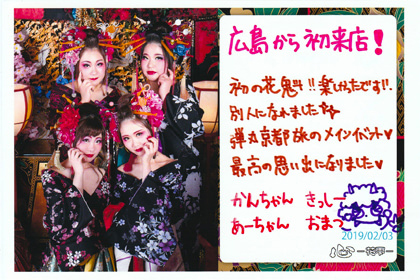 広島から初来店!
初の花魁!!楽しかったです!!
別人になれました
弾丸京都旅のメインイベント♥
最高の思い出になりました♥
かんちゃん きっしー
あーちゃん おまつ
2019/02/03
心-花雫-